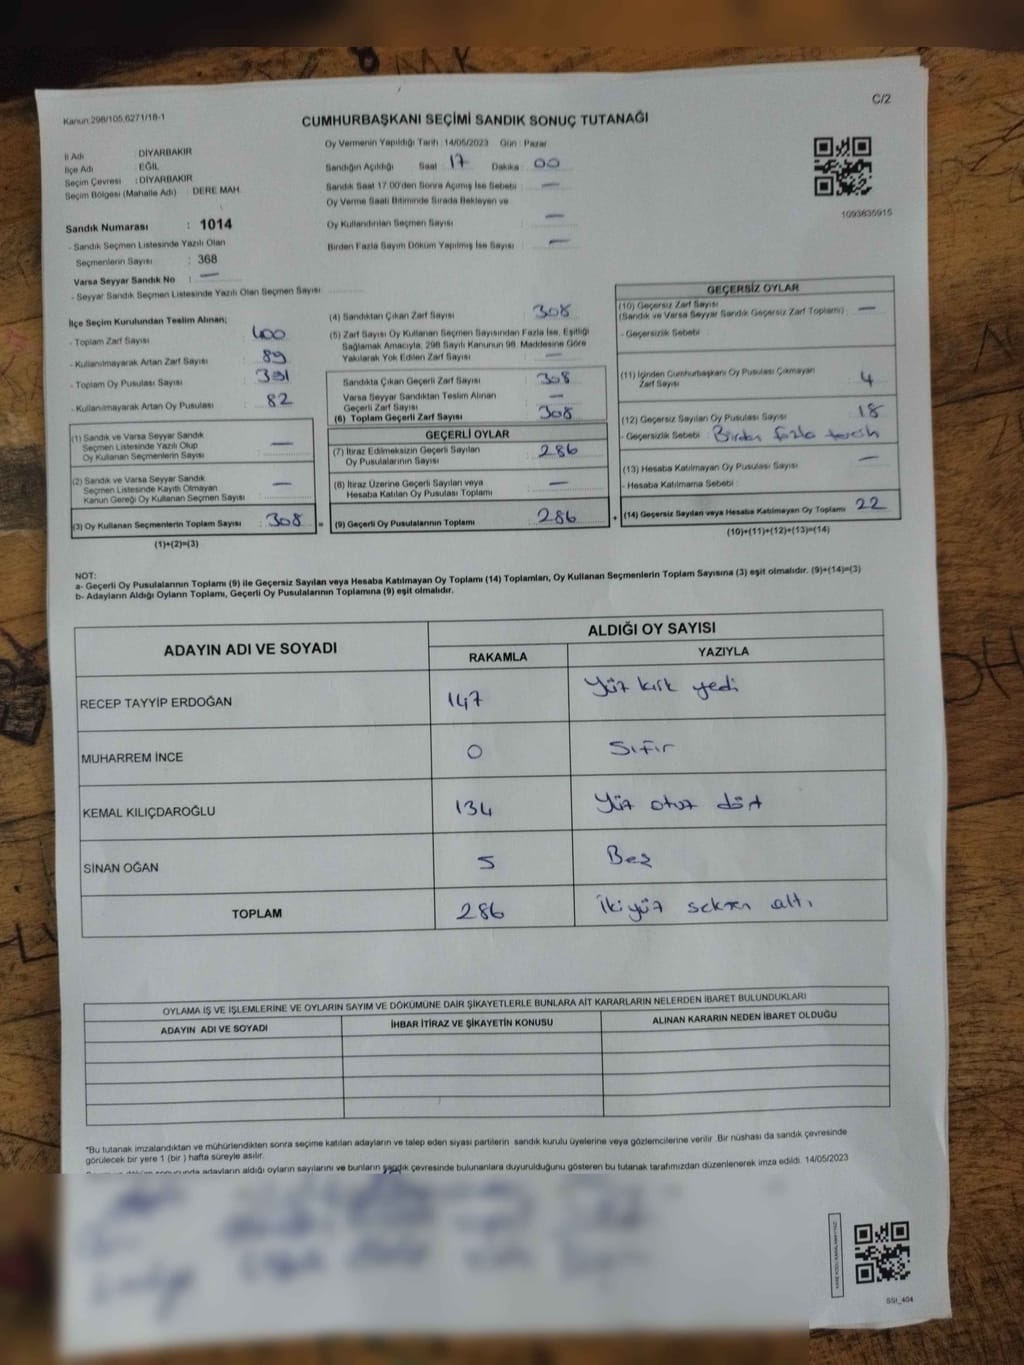 C/2
Kanun:298/105,6271/18-1
CUMHURBAŞKANI SEÇİMİ SANDIK SONUÇ TUTANAĞI
Oy Vermenin Yapıldığı Tarih : 14/05/2023 Gün : Pazar
İl Adı : DİYARBAKIR
İlçe Adı : EĞİL
Seçim Çevresi : DİYARBAKIR
Seçim Bölgesi (Mahalle Adı) : DERE MAH.
Sandığın Açıldığı Saat : 17 Dakika : 00
Sandık Saat 17.00'den Sonra Açımış İse Sebebi : —
Oy Verme Saati Bitiminde Sırada Bekleyen ve
Oy Kullandırılan Seçmen Sayısı : —
Birden Fazla Sayım Döküm Yapılmış İse Sayısı : —
1093635915
Sandık Numarası : 1014
- Sandık Seçmen Listesinde Yazılı Olan
Seçmenlerin Sayısı : 368
Varsa Seyyar Sandık No : —
- Seyyar Sandık Seçmen Listesinde Yazılı Olan Seçmen Sayısı
İlçe Seçim Kurulundan Teslim Alınan;
- Toplam Zarf Sayısı : 400
- Kullanılmayarak Artan Zarf Sayısı : 89
- Toplam Oy Pusulası Sayısı : 391
- Kullanılmayarak Artan Oy Pusulası : 82
(1) Sandık ve Varsa Seyyar Sandık
Seçmen Listesinde Yazılı Olup
Oy Kullanan Seçmenlerin Sayısı : —
(2) Sandık ve Varsa Seyyar Sandık
Seçmen Listesinde Kayıtlı Olmayan
Kanun Gereği Oy Kullanan Seçmen Sayısı : —
(3) Oy Kullanan Seçmenlerin Toplam Sayısı : 308 =
(1)+(2)=(3)
(4) Sandıktan Çıkan Zarf Sayısı : 308
(5) Zarf Sayısı Oy Kullanan Seçmen Sayısından Fazla İse, Eşitliği
Sağlamak Amacıyla, 298 Sayılı Kanunun 98. Maddesine Göre
Yakılarak Yok Edilen Zarf Sayısı : —
Sandıkta Çıkan Geçerli Zarf Sayısı : 308
Varsa Seyyar Sandıktan Teslim Alınan
Geçerli Zarf Sayısı : —
(6) Toplam Geçerli Zarf Sayısı : 308
GEÇERLİ OYLAR
(7) İtiraz Edilmeksizin Geçerli Sayılan
Oy Pusulalarının Sayısı : 286
(8) İtiraz Üzerine Geçerli Sayılan veya
Hesaba Katılan Oy Pusulası Toplamı : —
(9) Geçerli Oy Pusulalarının Toplamı : 286 +
GEÇERSİZ OYLAR
(10) Geçersiz Zarf Sayısı
(Sandık ve Varsa Seyyar Sandık Geçersiz Zarf Toplamı) : —
- Geçersizlik Sebebi :
(11) İçinden Cumhurbaşkanı Oy Pusulası Çıkmayan
Zarf Sayısı : 4
(12) Geçersiz Sayılan Oy Pusulası Sayısı : 18
- Geçersizlik Sebebi : Birden fazla tercih
(13) Hesaba Katılmayan Oy Pusulası Sayısı : —
- Hesaba Katılmama Sebebi :
(14) Geçersiz Sayılan veya Hesaba Katılmayan Oy Toplamı : 22
(10)+(11)+(12)+(13)=(14)
NOT:
a- Geçerli Oy Pusulalarının Toplamı (9) ile Geçersiz Sayılan veya Hesaba Katılmayan Oy Toplamı (14) Toplamları, Oy Kullanan Seçmenlerin Toplam Sayısına (3) eşit olmalıdır. (9)+(14)=(3)
b- Adayların Aldığı Oyların Toplamı, Geçerli Oy Pusulalarının Toplamına (9) eşit olmalıdır.
ADAYIN ADI VE SOYADI ALDIĞI OY SAYISI
RAKAMLA YAZIYLA
RECEP TAYYİP ERDOĞAN 147 Yüz kırk yedi
MUHARREM İNCE 0 Sıfır
KEMAL KILIÇDAROĞLU 134 Yüz otuz dört
SİNAN OĞAN 5 Beş
TOPLAM 286 İkiyüz seksen altı
OYLAMA İŞ VE İŞLEMLERİNE VE OYLARIN SAYIM VE DÖKÜMÜNE DAİR ŞİKAYETLERLE BUNLARA AİT KARARLARIN NELERDEN İBARET BULUNDUKLARI
ADAYIN ADI VE SOYADI İHBAR İTİRAZ VE ŞİKAYETİN KONUSU ALINAN KARARIN NEDEN İBARET OLDUĞU
*Bu tutanak imzalandıktan ve mühürlendikten sonra seçime katılan adayların ve talep eden siyasi partilerin sandık kurulu üyelerine veya gözlemcilerine verilir .Bir nüshası da sandık çevresinde
görülecek bir yere 1 (bir ) hafta süreyle asılır.
adayların aldığı oyların sayılarını ve bunların sandık çevresinde bulunanlara duyurulduğunu gösteren bu tutanak tarafımızdan düzenlenerek imza edildi. 14/05/2023
SSI_404